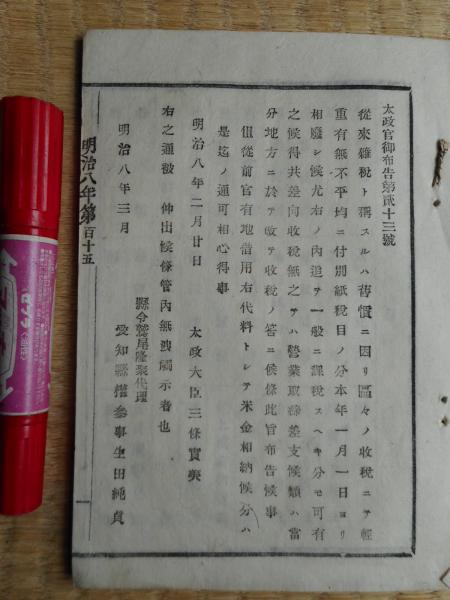 太政官御布告第貳十三號
從來雜稅ト稱スルハ舊慣ニ因リ區々ノ收稅ニテ輕
重有無不平均ニ付別紙稅目ノ分本年一月一日ヨリ
相廢シ候尤右ノ內追テ一般ニ課稅スヘキ分モ可有
之候得共差向收稅無之テハ營業取締差支候類ハ當
分地方ニ於テ改テ收稅ノ筈ニ候條此旨布告候事
但從前官有地借用右代料トシテ米金相納候分ハ
是迄ノ通可相心得事
明治八年二月廿日
太政大臣三條實美
右之通被 仰出候條管內無洩觸示者也
明治八年三月
縣令鷲尾隆聚代理
愛知縣權參事生田純貞
明治八年第百十五
ゼブラ